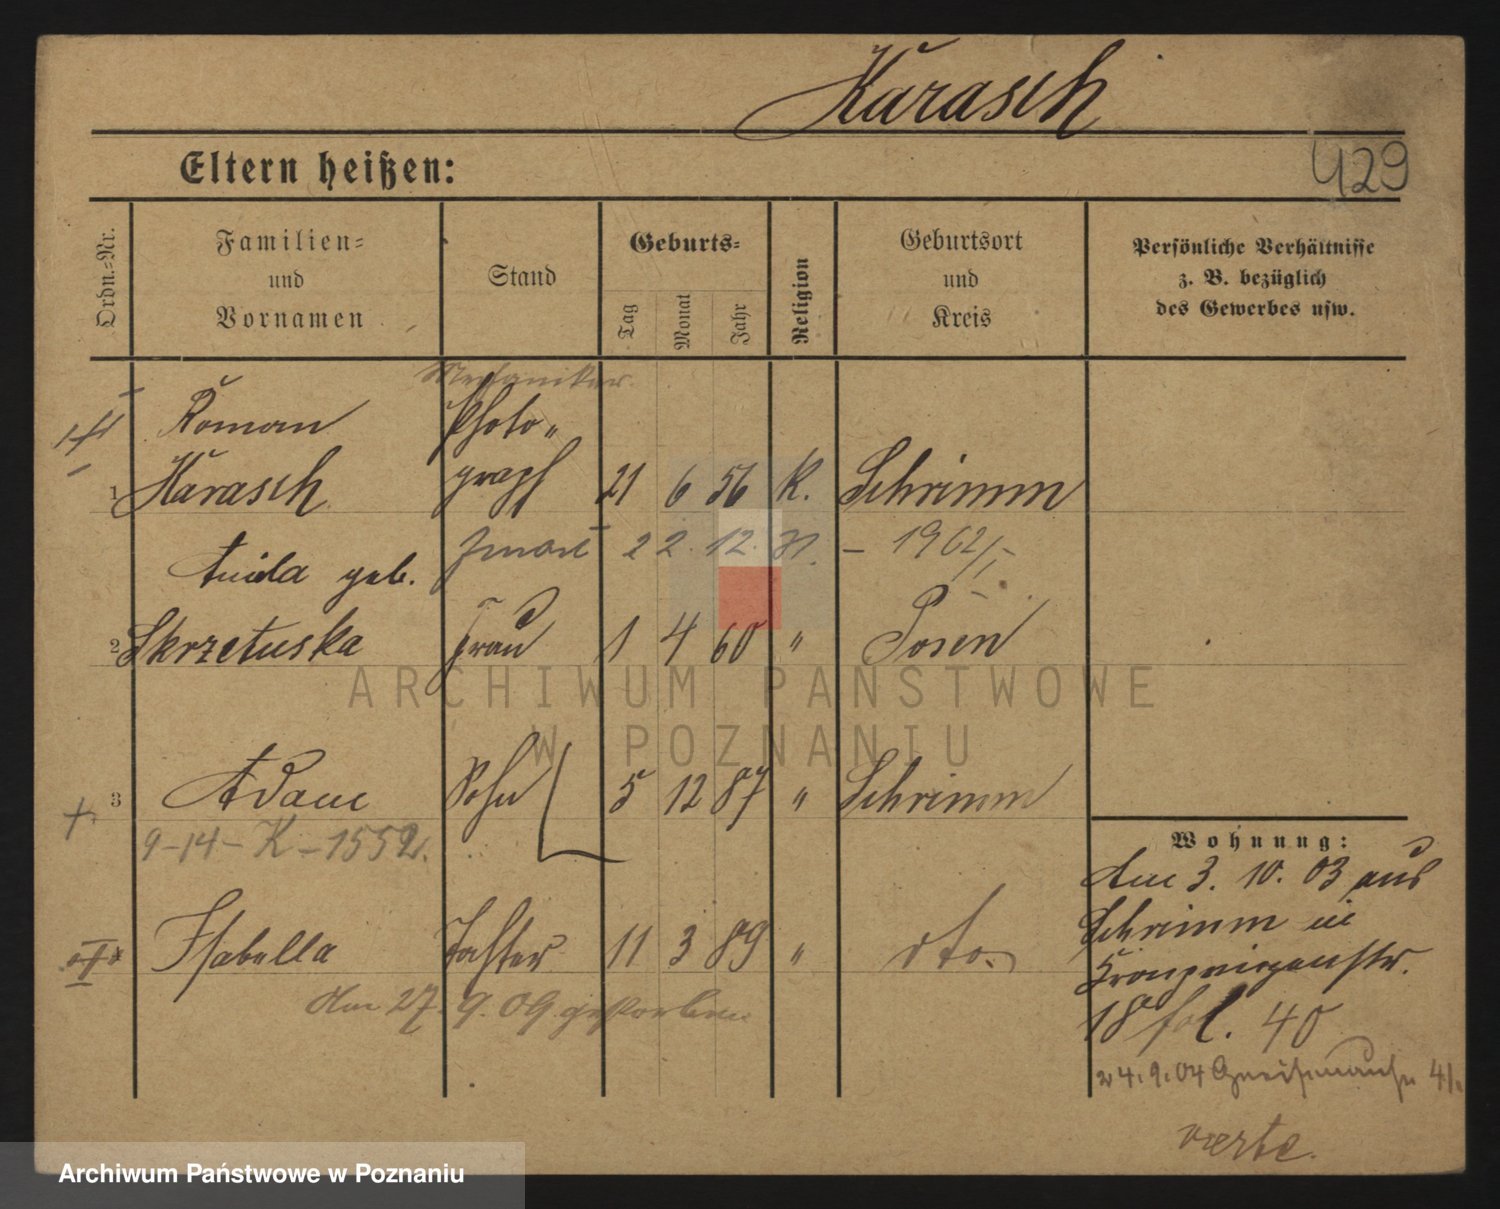 Karasch
Eltern heißen:
429
Ordn.-Nr.
Familien-
und
Vornamen
Stand
Geburts-
Tag
Monat
Jahr
Religion
Geburtsort
und
Kreis
Persönliche Verhältnisse
z. B. bezüglich
des Gewerbes usw.
Mechaniker.
Roman Photo„
1 Karasch graph 21 6 56 K. Schrimm
zmarł 22.12.31. – 1962/I-
geb.
2 Skrzetuska Frau 1 4 60 „ Posen
3 Adam Sohn 5 12 87 „ Schrimm
9-14-K-1552.
Isabella Tochter 11 3 89 „ dto.
Am 27. 9. 09 gestorben
Wohnung:
Am 3. 10. 03 aus
Schrimm in
Kronprinzenstr.
18 fol. 40
24.9.04 Gneisenaustr 4/
verte.
ARCHIWUM PAŃSTWOWE
W POZNANIU
Archiwum Państwowe w Poznaniu